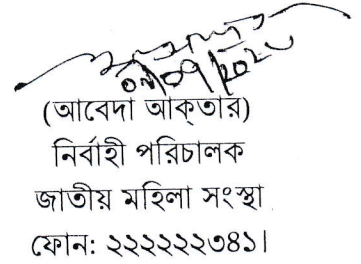 (আবেদা আক্‌তার)
নির্বাহী পরিচালক
জাতীয় মহিলা সংস্থা
ফোন: ২২২২২২৩৪১।